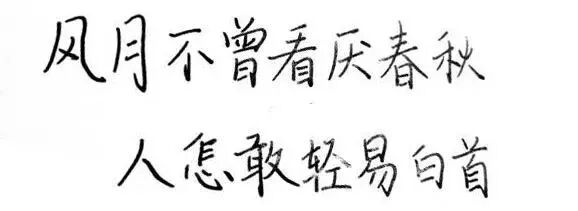 风月不曾看厌春秋
人怎敢轻易白首